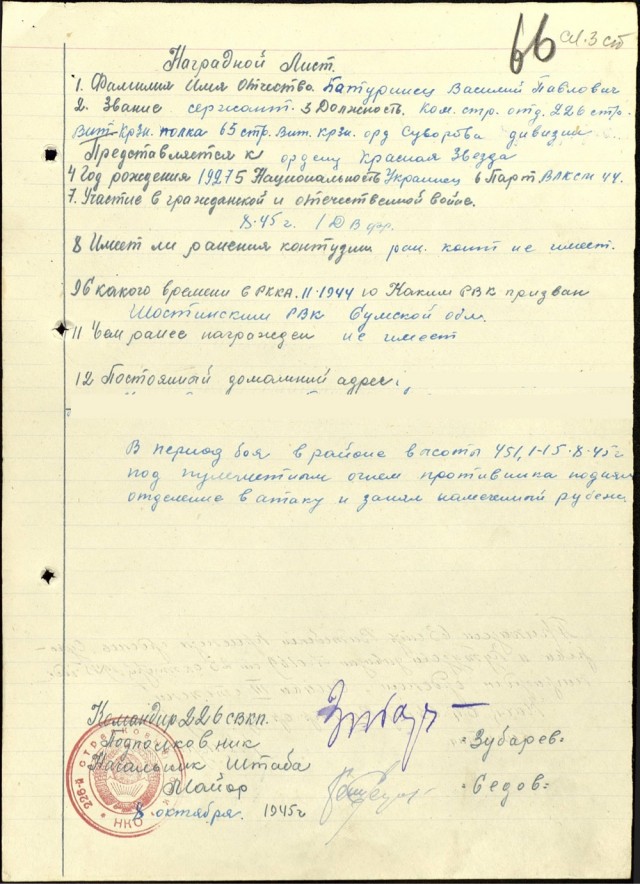 66 сл. 3 ст
Наградной Лист.
1. Фамилия Имя Отчество. Батуринец Василий Павлович
2. Звание сержант. 3 Должность. Ком. стр. отд. 226 стр.
Вит. Крзн. полка 65 стр. Вит. крзн. орд Суворова дивизии
Представляется к ордену Красная Звезда
4 Год рождения 1927 5 Национальность Украинец 6 Парт ВЛКСМ 44.
7. Участие в гражданской и отечественной войне.
8.45 г. 1 ДВ фр.
8 Имеет ли ранения контузии ран. конт не имеет.
9 С какого времени в РККА. 11.1944 10 Каким РВК призван
Шостинским РВК Сумской обл.
11 Чем ранее награжден не имеет
12 Постоянный домашний адрес:
В период боя в районе высоты 451,1-15.8.45г
под пулеметным огнем противника поднял
отделение в атаку и занял намеченный рубеж.
Командир 226 СВКП.
Подполковник
=Зубарев=
Начальник Штаба
Майор
=Седов=
8 октября. 1945г
226-й СТРЕЛКОВЫЙ НКО